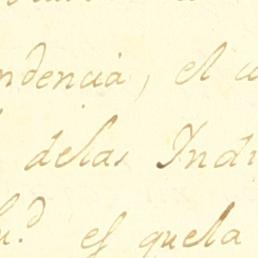 ndencia, el co
delas Indi
u.d es quela